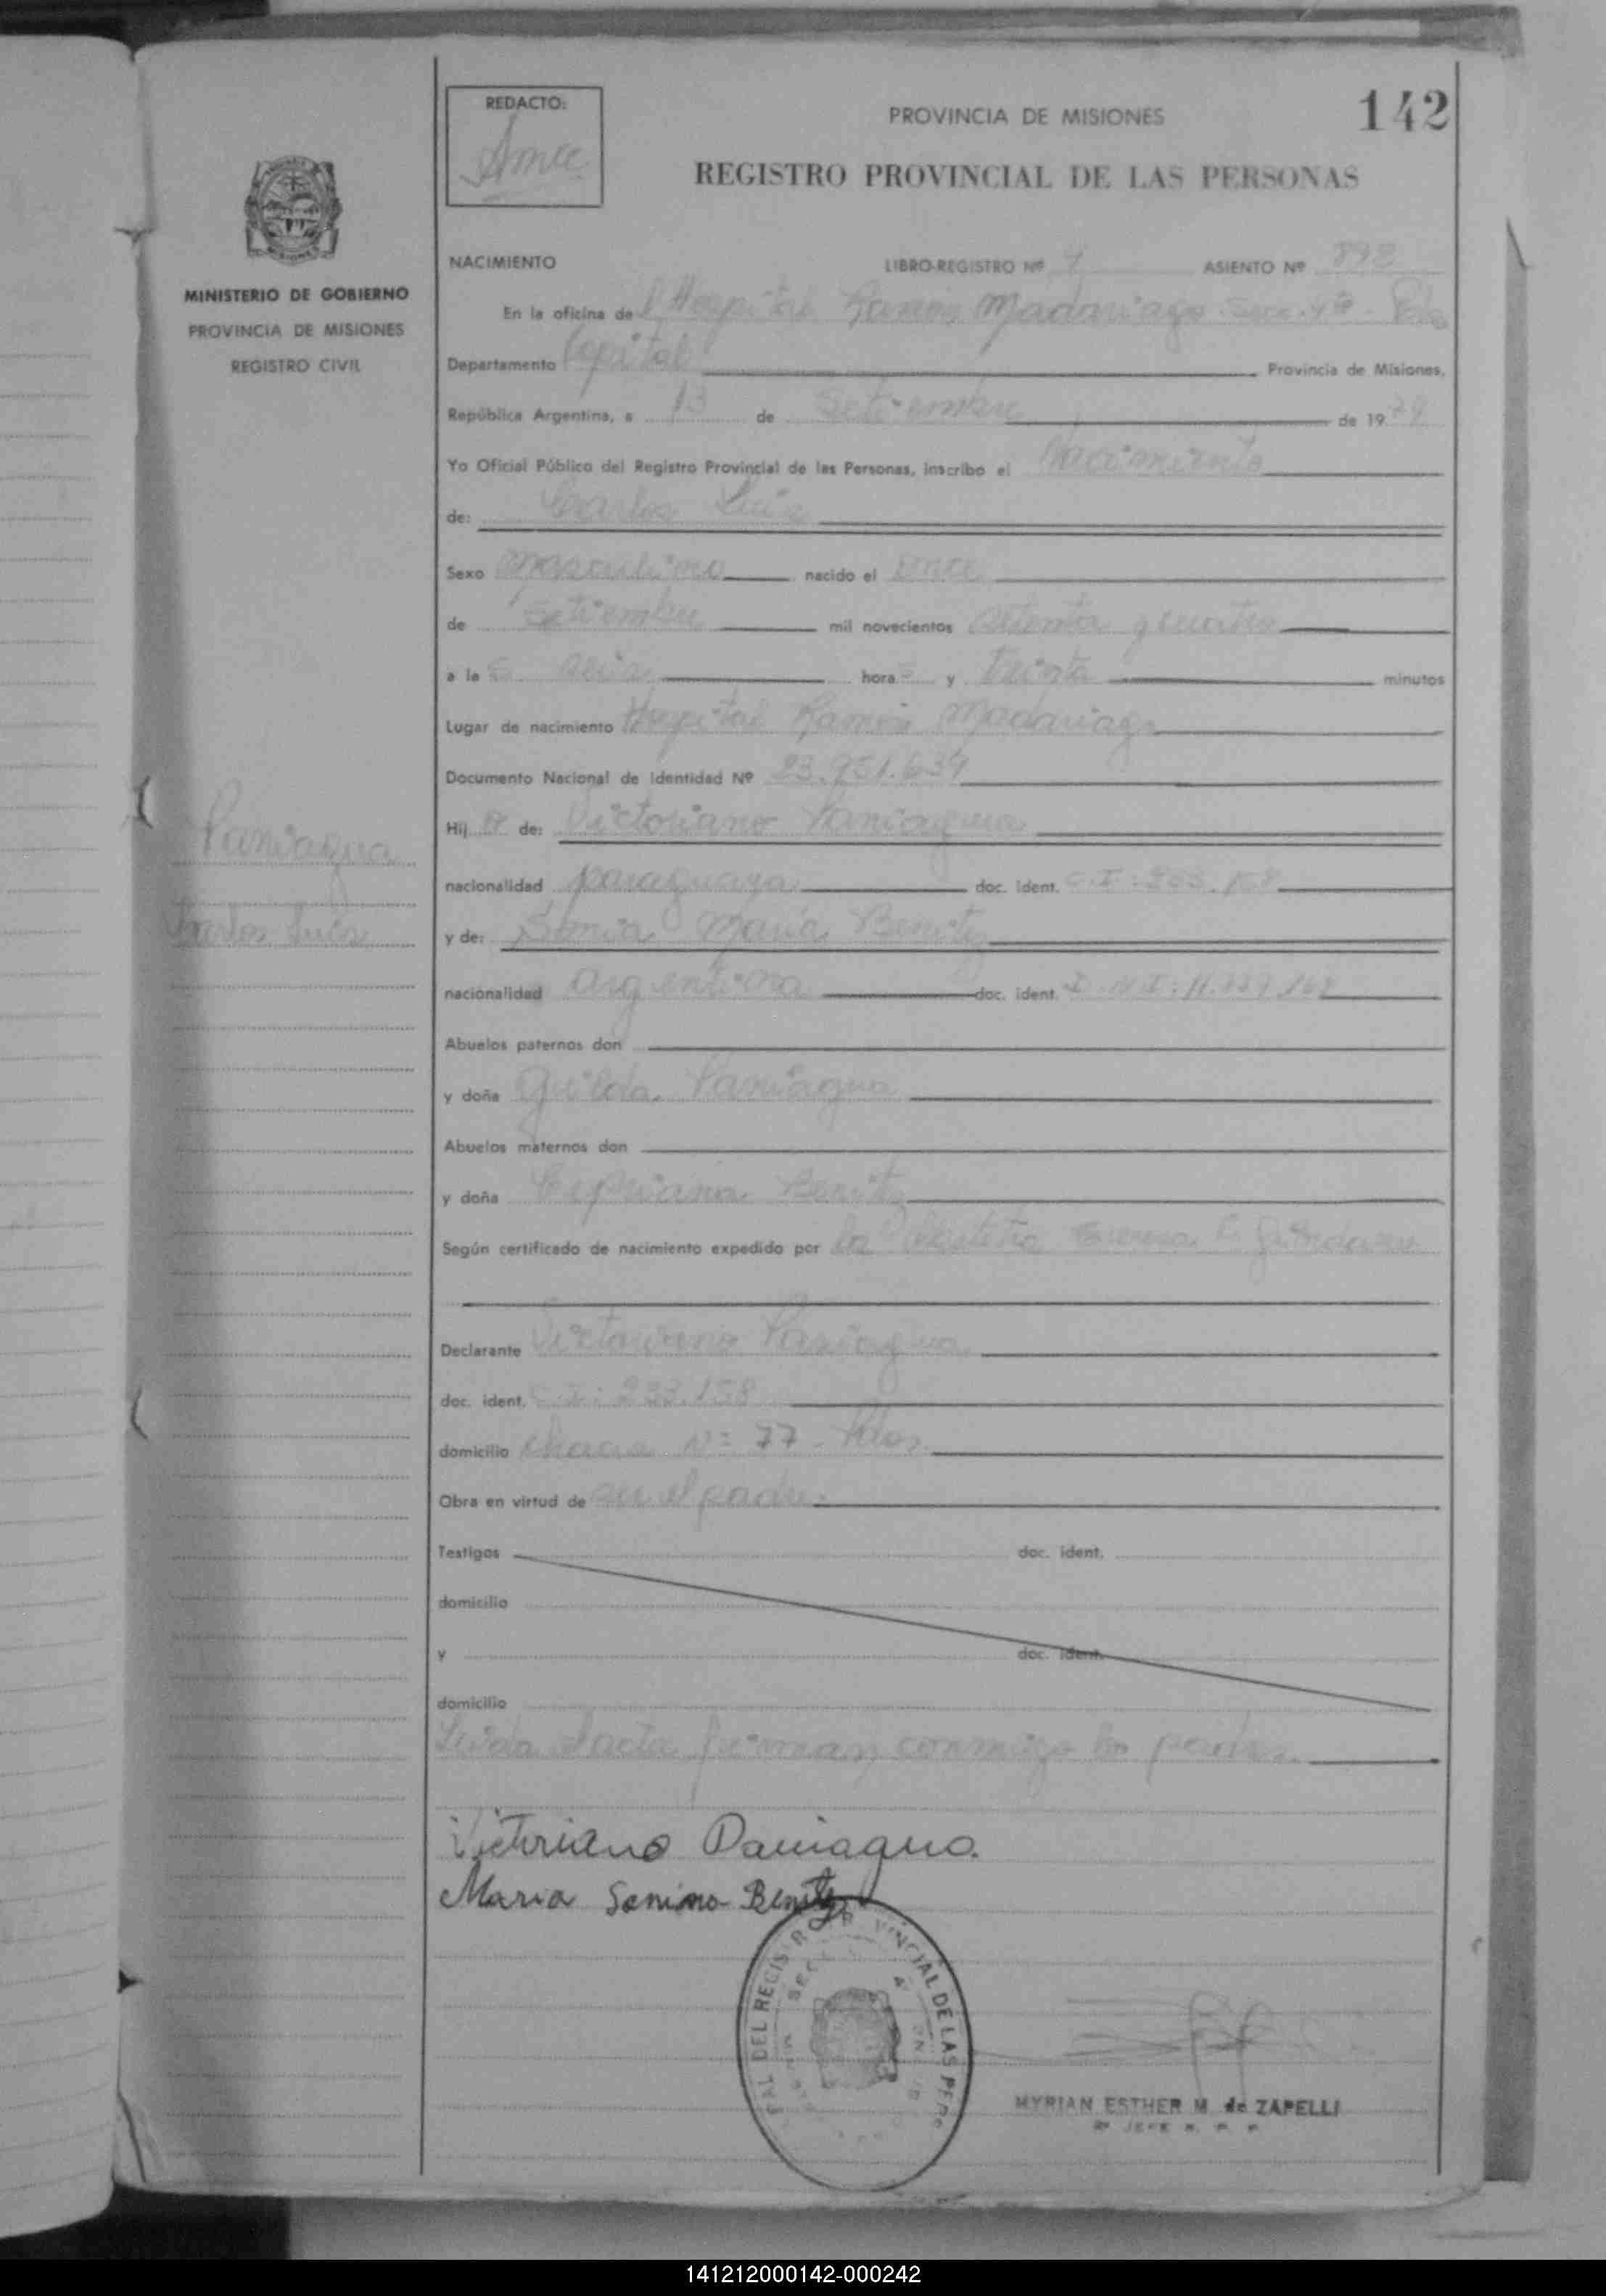 REDACTO:
PROVINCIA DE MISIONES
142
REGISTRO PROVINCIAL DE LAS PERSONAS
MINISTERIO DE GOBIERNO
PROVINCIA DE MISIONES
REGISTRO CIVIL
NACIMIENTO LIBRO-REGISTRO Nº ASIENTO Nº
En la oficina del Hospital Ramón Madariaga
Departamento Capital Provincia de Misiones,
República Argentina, a 13 de Setiembre de 19
Yo Oficial Público del Registro Provincial de las Personas, inscribo el Nacimiento
de: Carlos Luis
Sexo Masculino nacido el once
de Setiembre mil novecientos setenta y cuatro
a las seis horas y treinta minutos
Lugar de nacimiento Hospital Ramón Madariaga
Documento Nacional de Identidad Nº 23.951.639
Hijo de: Victoriano Paniagua
Paniagua
nacionalidad paraguaya doc. ident. C.I.
Carlos Luis
y de: María Benitez
nacionalidad argentina doc. ident. D.N.I:
Abuelos paternos don
y doña Paniagua
Abuelos maternos don
y doña Cipriana Benitez
Según certificado de nacimiento expedido por la
Declarante Victoriano Paniagua
doc. ident. C.I:
domicilio chacra Nº 77 - Pdas.
Obra en virtud de ser el padre.
Testigos doc. ident.
domicilio
y doc. ident.
domicilio
Leída el acta firman conmigo los padres
Victoriano Paniagua.
Maria Benitez
DEL REGISTRO PROVINCIAL DE LAS PERS
MYRIAN ESTHER M de ZAPELLI
141212000142-000242